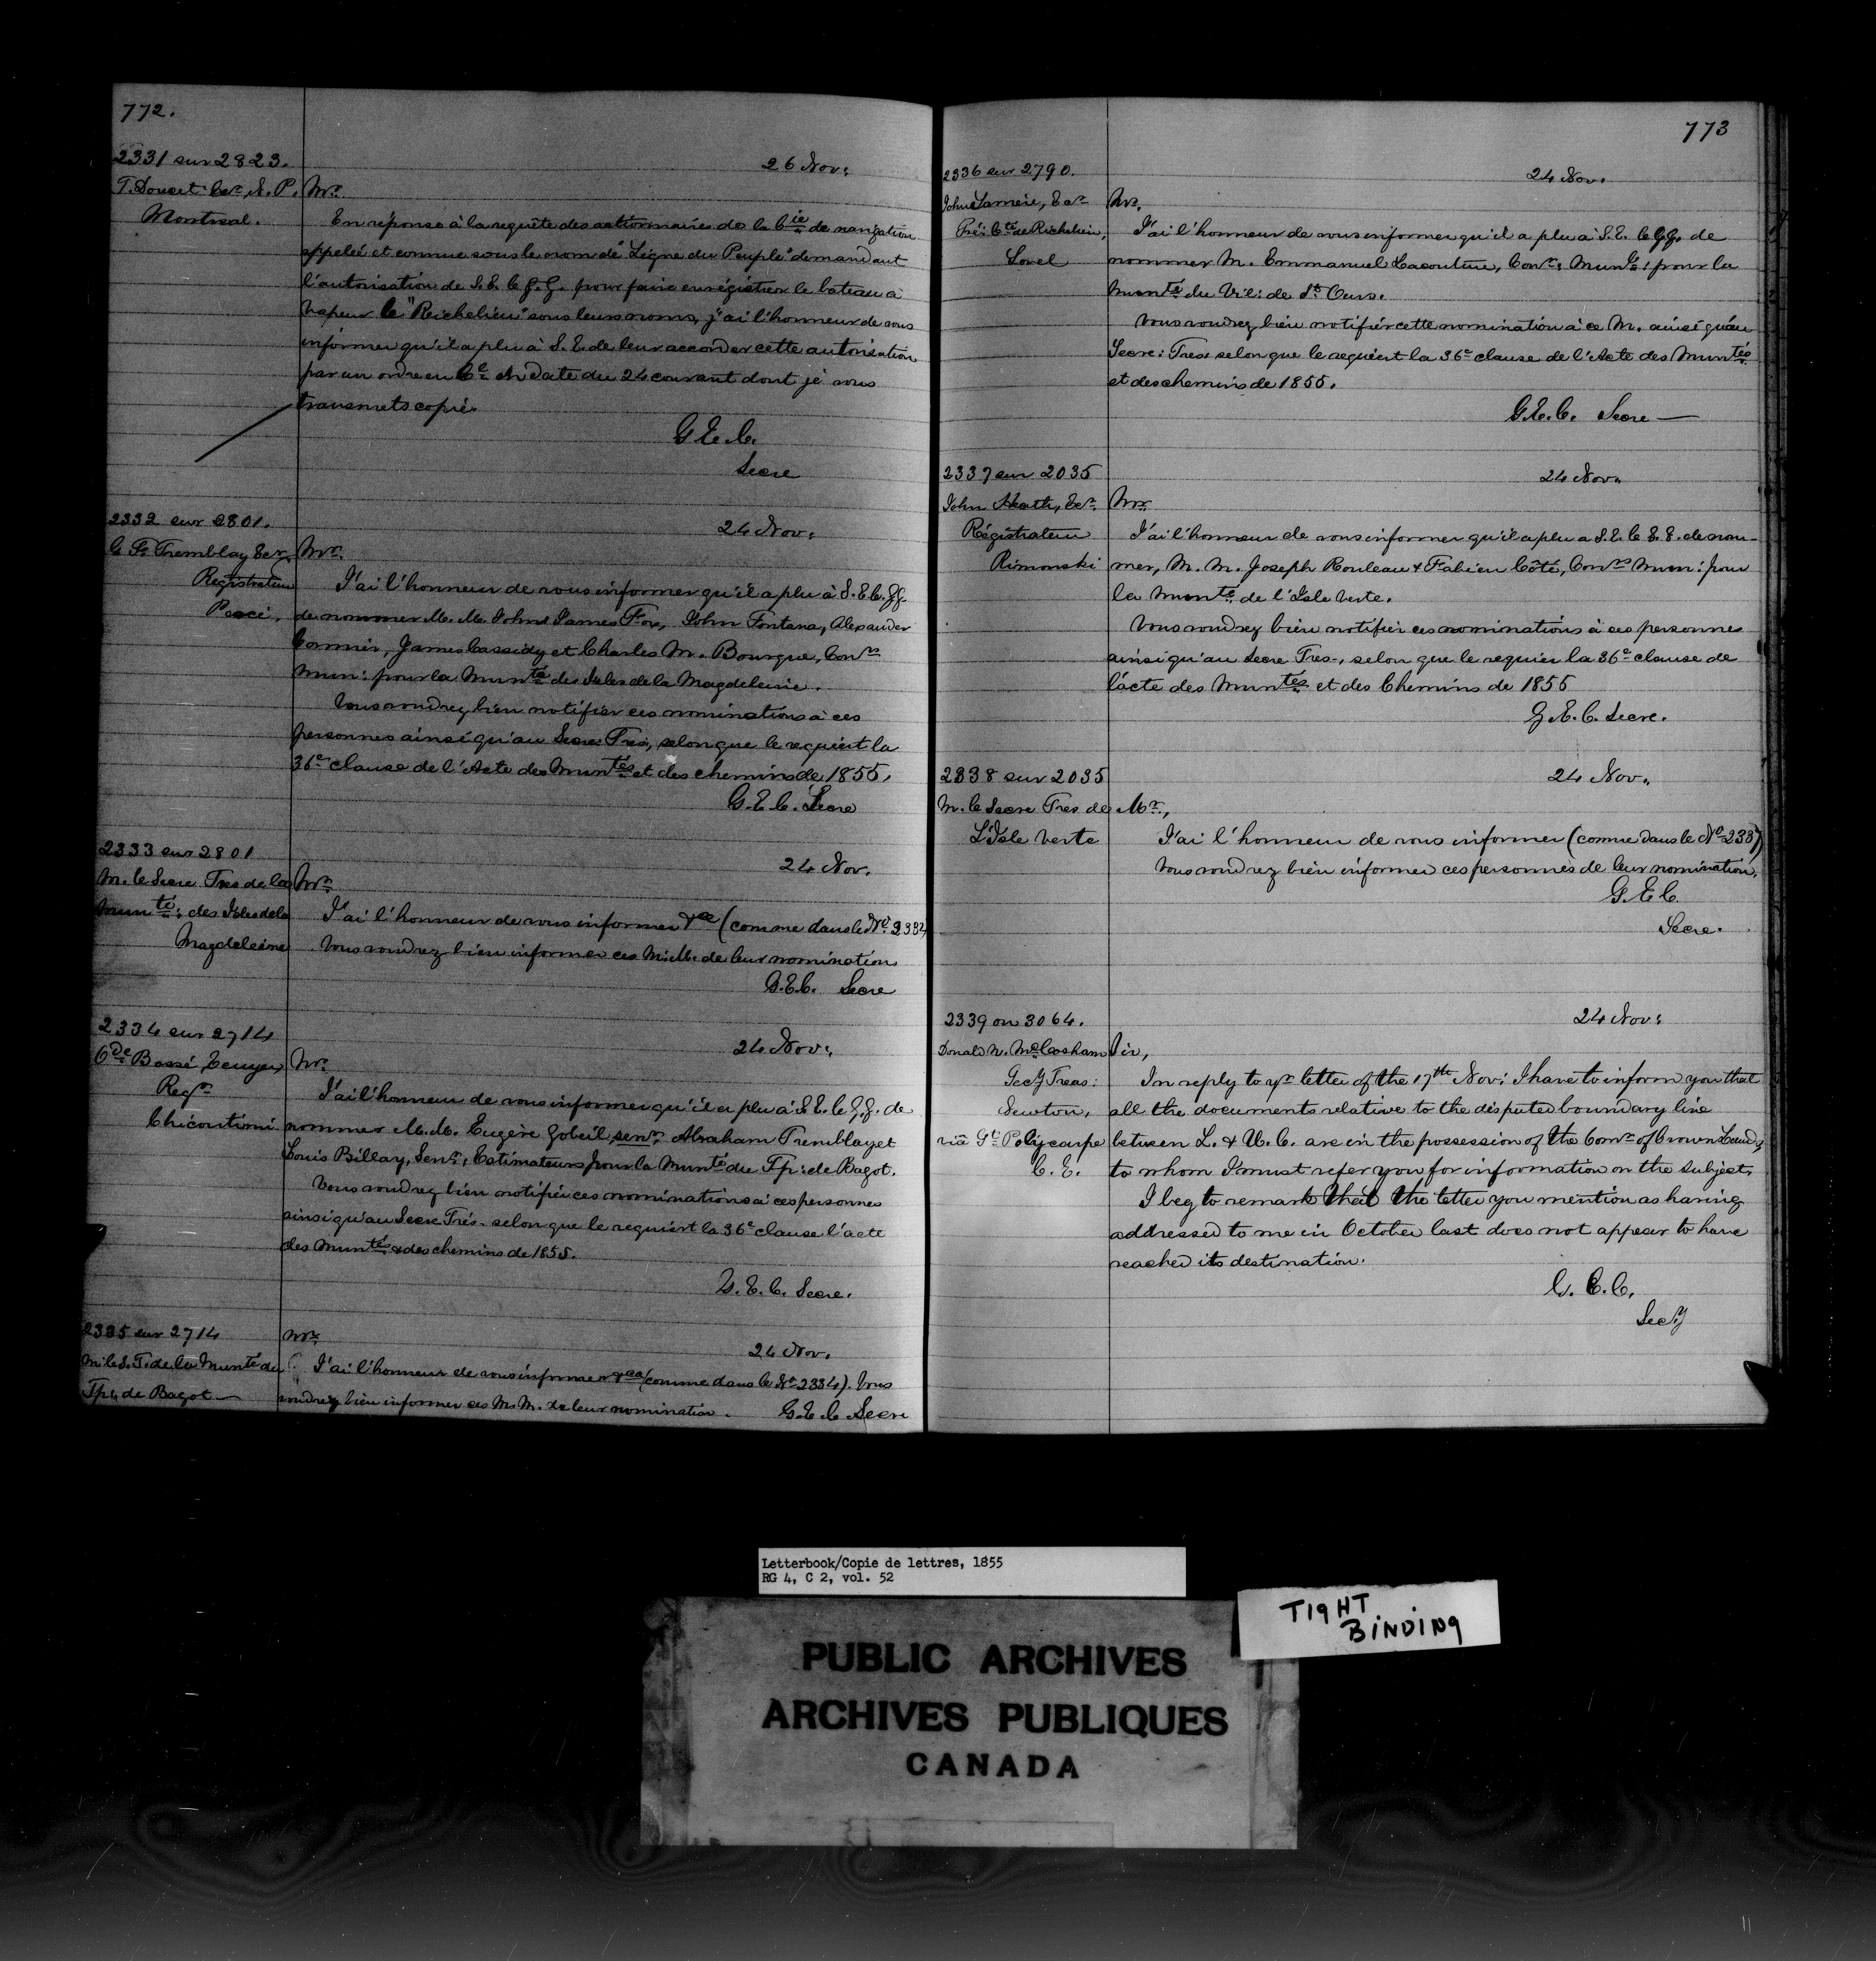 772.
2331 sur 2823.
26 Nov:
T. Doucet Ecr, N. P.
Montreal.
Mr.
En réponse à la requête des actionnaires de la Cie de navigation
appelée et connue sous le nom de "Ligne du Peuple" demandant
l'autorisation de S. E. le G. G. pour faire enrégistrer le bateau à
vapeur le "Richelieu" sous leurs noms, j'ai l'honneur de vous
informer qu'il a plu à S. E. de leur accorder cette autorisation
par un ordre en Cl en date du 24 courant dont je vous
transmets copie.
G. E. C.
Secre
2332 sur 2801.
24 Nov:
Tremblay Ecr
Registrateur
Percé,
Mr.
J'ai l'honneur de vous informer qu'il a plu à S. E. le G. G.
de nommer M. M. John James Fox, John Fontana, Alexander
Cormier, James Cassidy et Charles M. Bourque, Conrs
Mun: pour la Munté des Isles de la Magdeleine.
Vous voudrez bien notifier ces nominations à ces
personnes ainsi qu'au Secre: Trés:, selon que le requiert la
36e clause de l'Acte des Muntés et des chemins de 1855.
G. E. C. Secre
2333 sur 2801
24 Nov.
M. le Secre Tres de la
Munté: des Isles de la
Magdeleine
Mr.
J'ai l'honneur de vous informer &ca (comme dans le No. 2332)
Vous voudrez bien informer ces M. M. de leur nomination
G. E. C. Secre
2334 sur 2714
24 Nov:
Bossé, Ecuyer,
Regr
Chicoutimi
Mr.
J'ai l'honneur de vous informer qu'il a plu à S. E. le G. G. de
nommer M. M. Eugère Gobeil, senr, Abraham Tremblay et
Louis Billay, Senr, Estimateurs pour la Munté du Tp: de Bagot.
Vous voudrez bien notifier ces nominations à ces personnes
ainsi qu'au Secre Trés- selon que le requiert la 36e clause l'acte
des Muntés & des chemins de 1855.
G. E. C. Secre.
2335 sur 2714
24 Nov.
M. le S. T. de la Munté du
Tp: de Bagot —
Mr.
J'ai l'honneur de vous informer &ca (comme dans le No 2334). Vous
voudrez bien informer ces M. M. de leur nomination. G. E. C. Secre
773
2336 sur 2790.
24 Nov.
John Ecr
Prés: Cté de Richelieu,
Sorel
Mr.
J'ai l'honneur de vous informer qu'il a plu à S. E. le G. G. de
nommer M. Emmanuel Lacouture, Conr: Munl: pour la
Munté du Vil: de St Ours.
Vous voudrez bien notifier cette nomination à ce M. ainsi qu'au
Secre: Tres: selon que le requiert la 36e clause de l'Acte des Muntés
et des chemins de 1855.
G. E. C. Secre —
2337 sur 2035
24 Nov.
John Heath, Ecr.
Régistrateur
Rimouski
Mr.
J'ai l'honneur de vous informer qu'il a plu a S. E. le G. G. de nom-
mer, M. M. Joseph Rouleau & Fabien Côté, Conrs Mun: pour
la Munté de l'Isle Verte.
Vous voudrez bien notifier ces nominations à ces personnes
ainsi qu'au Secre Tres-, selon que le requier la 36e clause de
l'acte des Muntés et des Chemins de 1855
G. E. C. Secre.
2338 sur 2035
24 Nov.
M. le Secre Tres de
L'Isle Verte
Mr.,
J'ai l'honneur de vous informer (comme dans le No 2337)
Vous voudrez bien informer ces personnes de leur nomination.
G. E. C.
Secre.
2339 on 3064.
24 Nov:
Donald N. McCosham
Secy Treas:
Newton,
viâ St Polycarpe
C. E.
Sir,
In reply to yr letter of the 17th Nov: I have to inform you that
all the documents relative to the disputed boundary line
between L. & U. C. are in the possession of the Comr of Crown Lands,
to whom I must refer you for information on the subject.
I beg to remark that the letter you mention as having
addressed to me in October last does not appear to have
reached its destination.
G. E. C.
Secy
Letterbook/Copie de lettres, 1855
RG 4, C 2, vol. 52
TIGHT
BINDING
PUBLIC ARCHIVES
ARCHIVES PUBLIQUES
CANADA